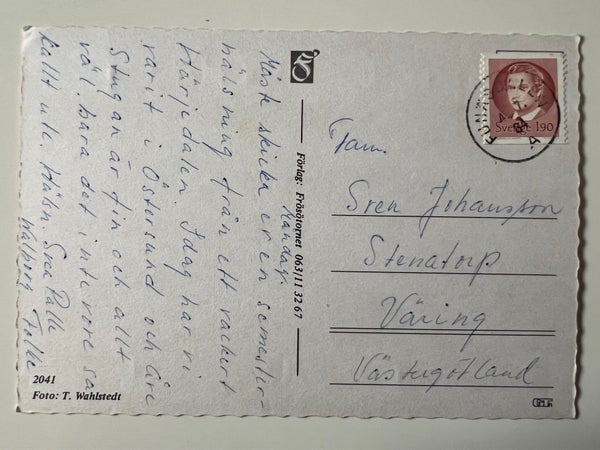 Måndag.
Måste skicka er en semester-
hälsning från ett vackert
Härjedalen. Idag har vi
varit i Östersund och Åre
Stugan är fin och allt
väl. bara det inte vore så
kallt ute. Hälsn.
Walborg Folke
2041
Foto: T. Wahlstedt
Förlag: Frösötornet 063/11 32 67
Sverige 190
Fam.
Sven Johansson
Stenatorp
Väring
Västergötland